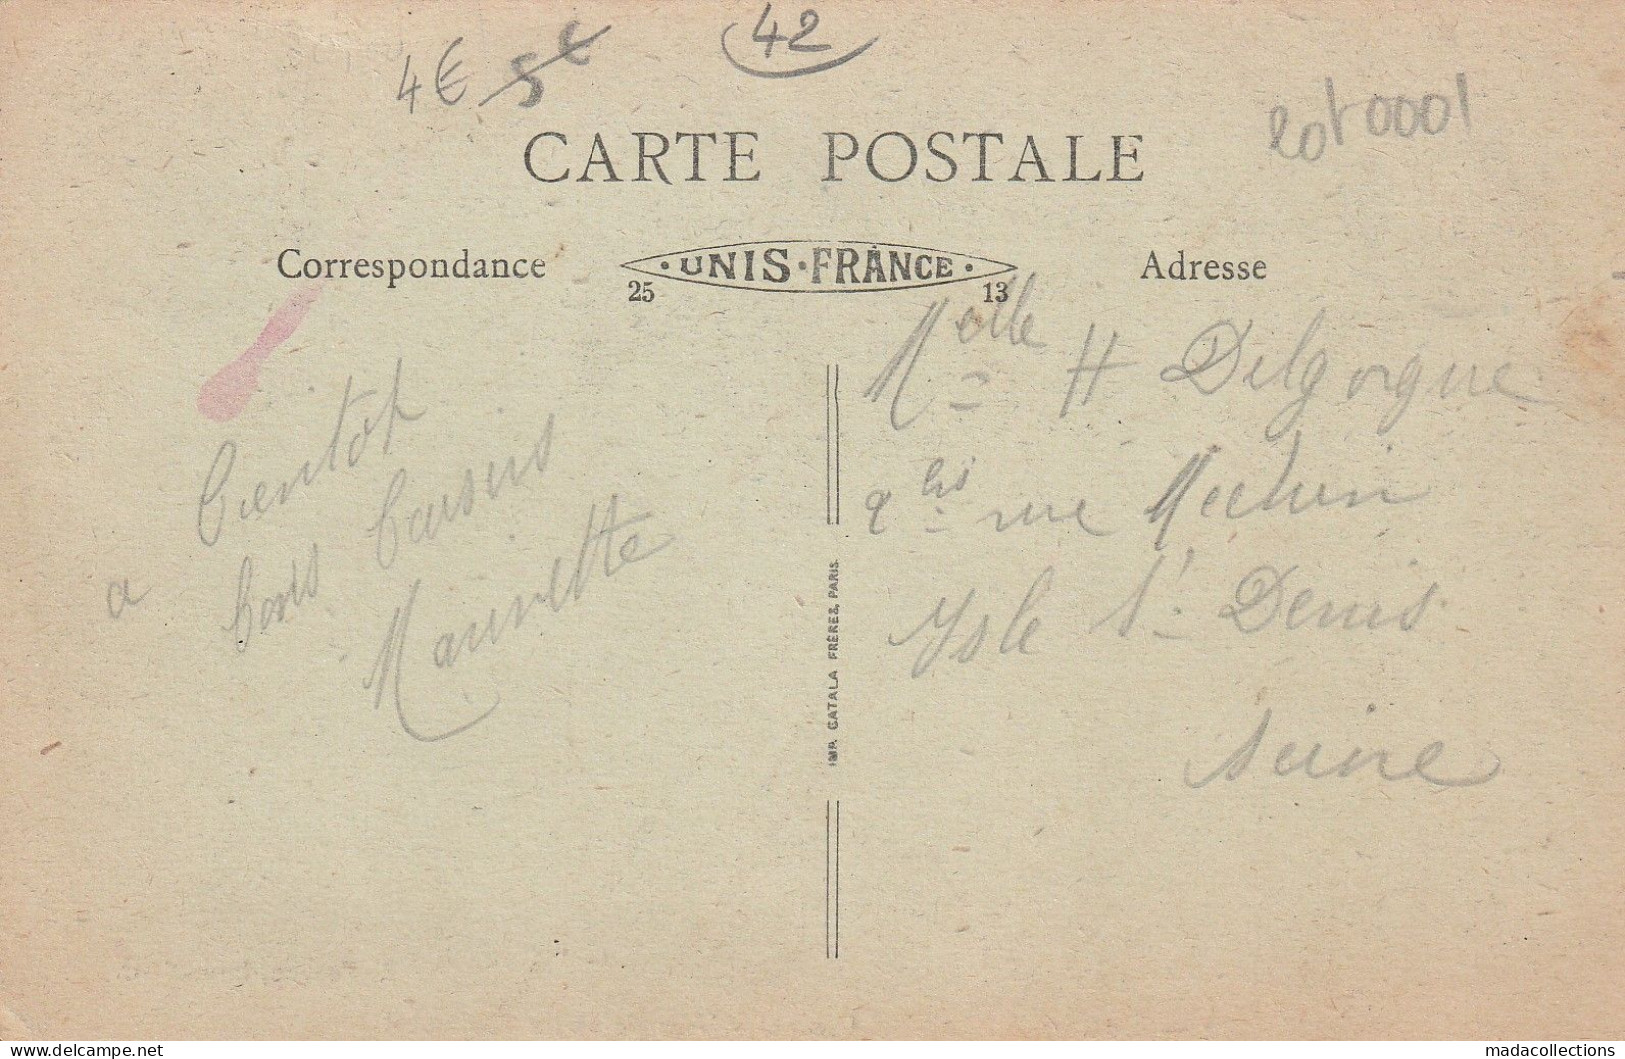 42
4€ 5€
lot 0001
CARTE POSTALE
Correspondance
UNIS·FRANCE
25 13
Adresse
a bientot
bons baisers
Maurette
IMP. CATALA FRÈRES, PARIS
Melle H Delgorgue
bis rue Mechin
Ysle St Denis
Seine
delcampe.net
madacollections